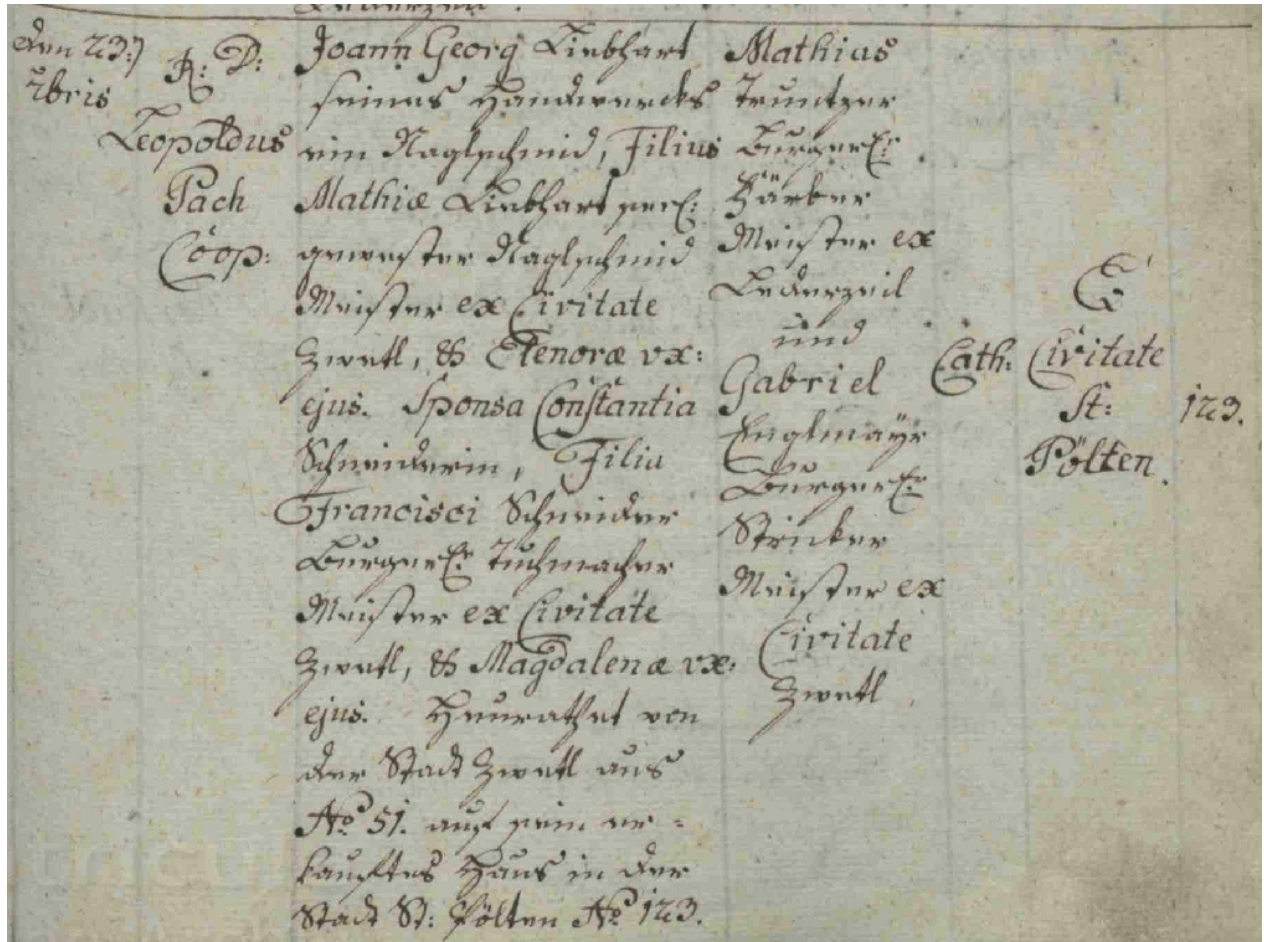 den 23:
7bris
R: D:
Leopoldus
Pach
Coop:
Joann Georg Liebhart
seines Handwercks
ein Naglschmid, Filius
Mathiæ Liebhart seel:
gewester Naglschmid
Meister ex Civitate
Zwetl, & Elenoræ ux:
ejus. Sponsa Constantia
Schneiderin, Filia
Francisci Schneider
Burgerl: Tuchmacher
Meister ex Civitate
Zwetl, & Magdalenæ ux:
ejus. Heurathet von
der Stadt Zwetl aus
No 51. auf sein er=
kauftes Haus in der
Stadt St: Pölten No 123.
Mathias
Truntzer
Burgerl:
Färber
Meister ex
Ledererzeil
und
Gabriel
Englmayr
Burgerl:
Stricker
Meister ex
Civitate
Zwetl
Cath:
E
Civitate
St:
Pölten.
123.